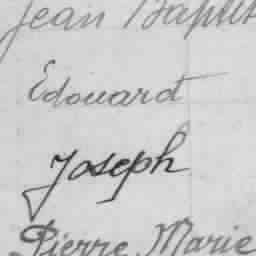 Jean Baptist
Edouard
Joseph
Pierre Marie